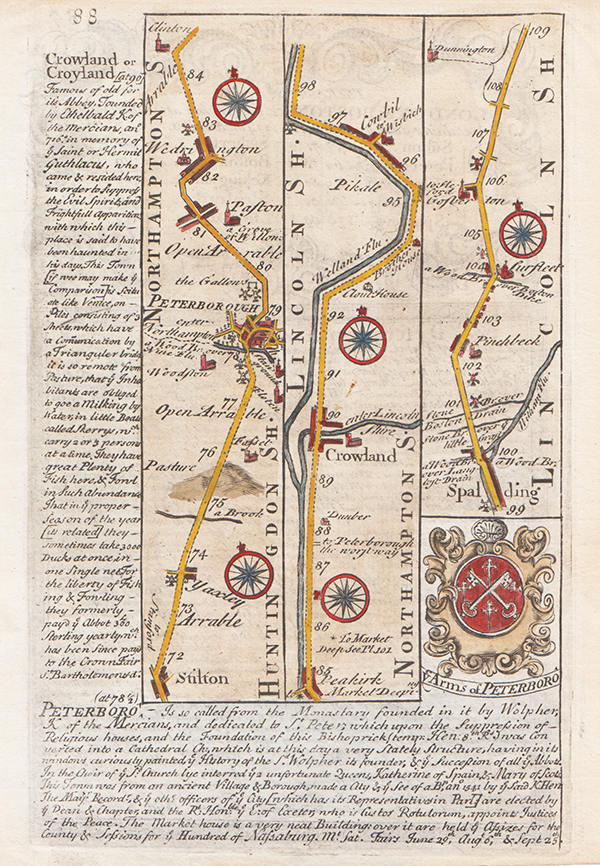 88
Crowland or
Croyland (at 90)
Famous of old for
its Abbey, Founded
by Ethelbald K. of
the Mercians, an.
716. in memory of
Saint or Hermit
Guthlacus, who
came & resided here
in order to Suppress
the Evil Spirits and
Frightfull Apparitions
with which this
place is said to have
been haunted in
his days. This Town
if we may make
Comparison for Scitu
ate like Venice, on
Piles consisting of 3
Streets, which have
a Comunication by
a Trianguler bridge
it is so remote from
Pasture, that ẏ Inha
bitants are obliged
to goe a Milking by
Water, in little Boats
called Skerrys, wch
carry 2 or 3 persons
at a time. They have
great Plenty of
Fish here, & Fowl
in Such abundance
That in ẏ proper
Season of the year
[its related] they
sometimes take 3000
Ducks at once in
one Single net. For
the liberty of Fish
ing & Fowling
they formerly
pay'd ẏ Abbot 300
Sterling yearly
has been Since payd
to the Crown. Fair
St. Bartholomews d.
Clinton
Arrable
84
83
Wedrington
82
81
Paston
a Grove
Open Arrable
80
the Gallows
PETERBOROUGH
79
enter
Northampton
a Wood Bridge
Nine Flu.
Woodston
77
Open Arrable
76
Pasture
75
a Brook
74
Yaxley
73
Arrable
Stanford
72
Stilton
NORTHAMPTON S
HUNTINGDON SH
98
97
Cowbil
96
Pikale
95
Welland Flu
92
91
90
enter Lincoln
Shire
Crowland
89
Dunber
88
to Peterborough
the worst way
87
86
To Market
Deep See Pl. 101
85
Peakirk
Market Deep
LINCOLN SH.
NORTHAMPTON S
109
Dunnington
108
107
106
Gosberton
105
Surfleet
a Wood Br. over Boston
103
Pinchbeck
102
101
a Drain
Stone Br. over
100
a Wood Br.
Spalding
99
LINCOLN SH
ẏ Arms of PETERBORO.
(at 78½)
PETERBORO', Is so called from the Monastary founded in it by Wolpher,
K. of the Mercians, and dedicated to St. Peter; which upon the Suppression of
Religious houses, and the Foundation of this Bishoprick (temp. Hen: 8th R.) was Con
verted into a Cathedral Ch, which is at this day a very Stately Structure, having in its
windows curiously painted, ẏ History of the St. Wolpher its founder, & ẏ Succession of all ẏ Abbots.
In the Choir of ẏ St. Church lye interred ẏ 2 unfortunate Queens, Katherine of Spain, & Mary of Scots.
This Town was from an ancient Village & Borough, made a City & ẏ See of a Bp. an 1541 by ẏ said K. Hen
The May: Record.r, & ẏ othr. officers of ẏ City [which has its Representatives in Parlt] are elected by
ẏ Dean & Chapter, and the Rt. Honr. ẏ E. of Exeter, who is Custos Rotulorum, appoints Justices
of the Peace. The Market house is a very neat Building, over it are held ẏ Assizes for the
County & Sessions for ẏ Hundred of Nassaburg. Mt. Sat. Fairs June 29, Aug 6th, & Sept 25.